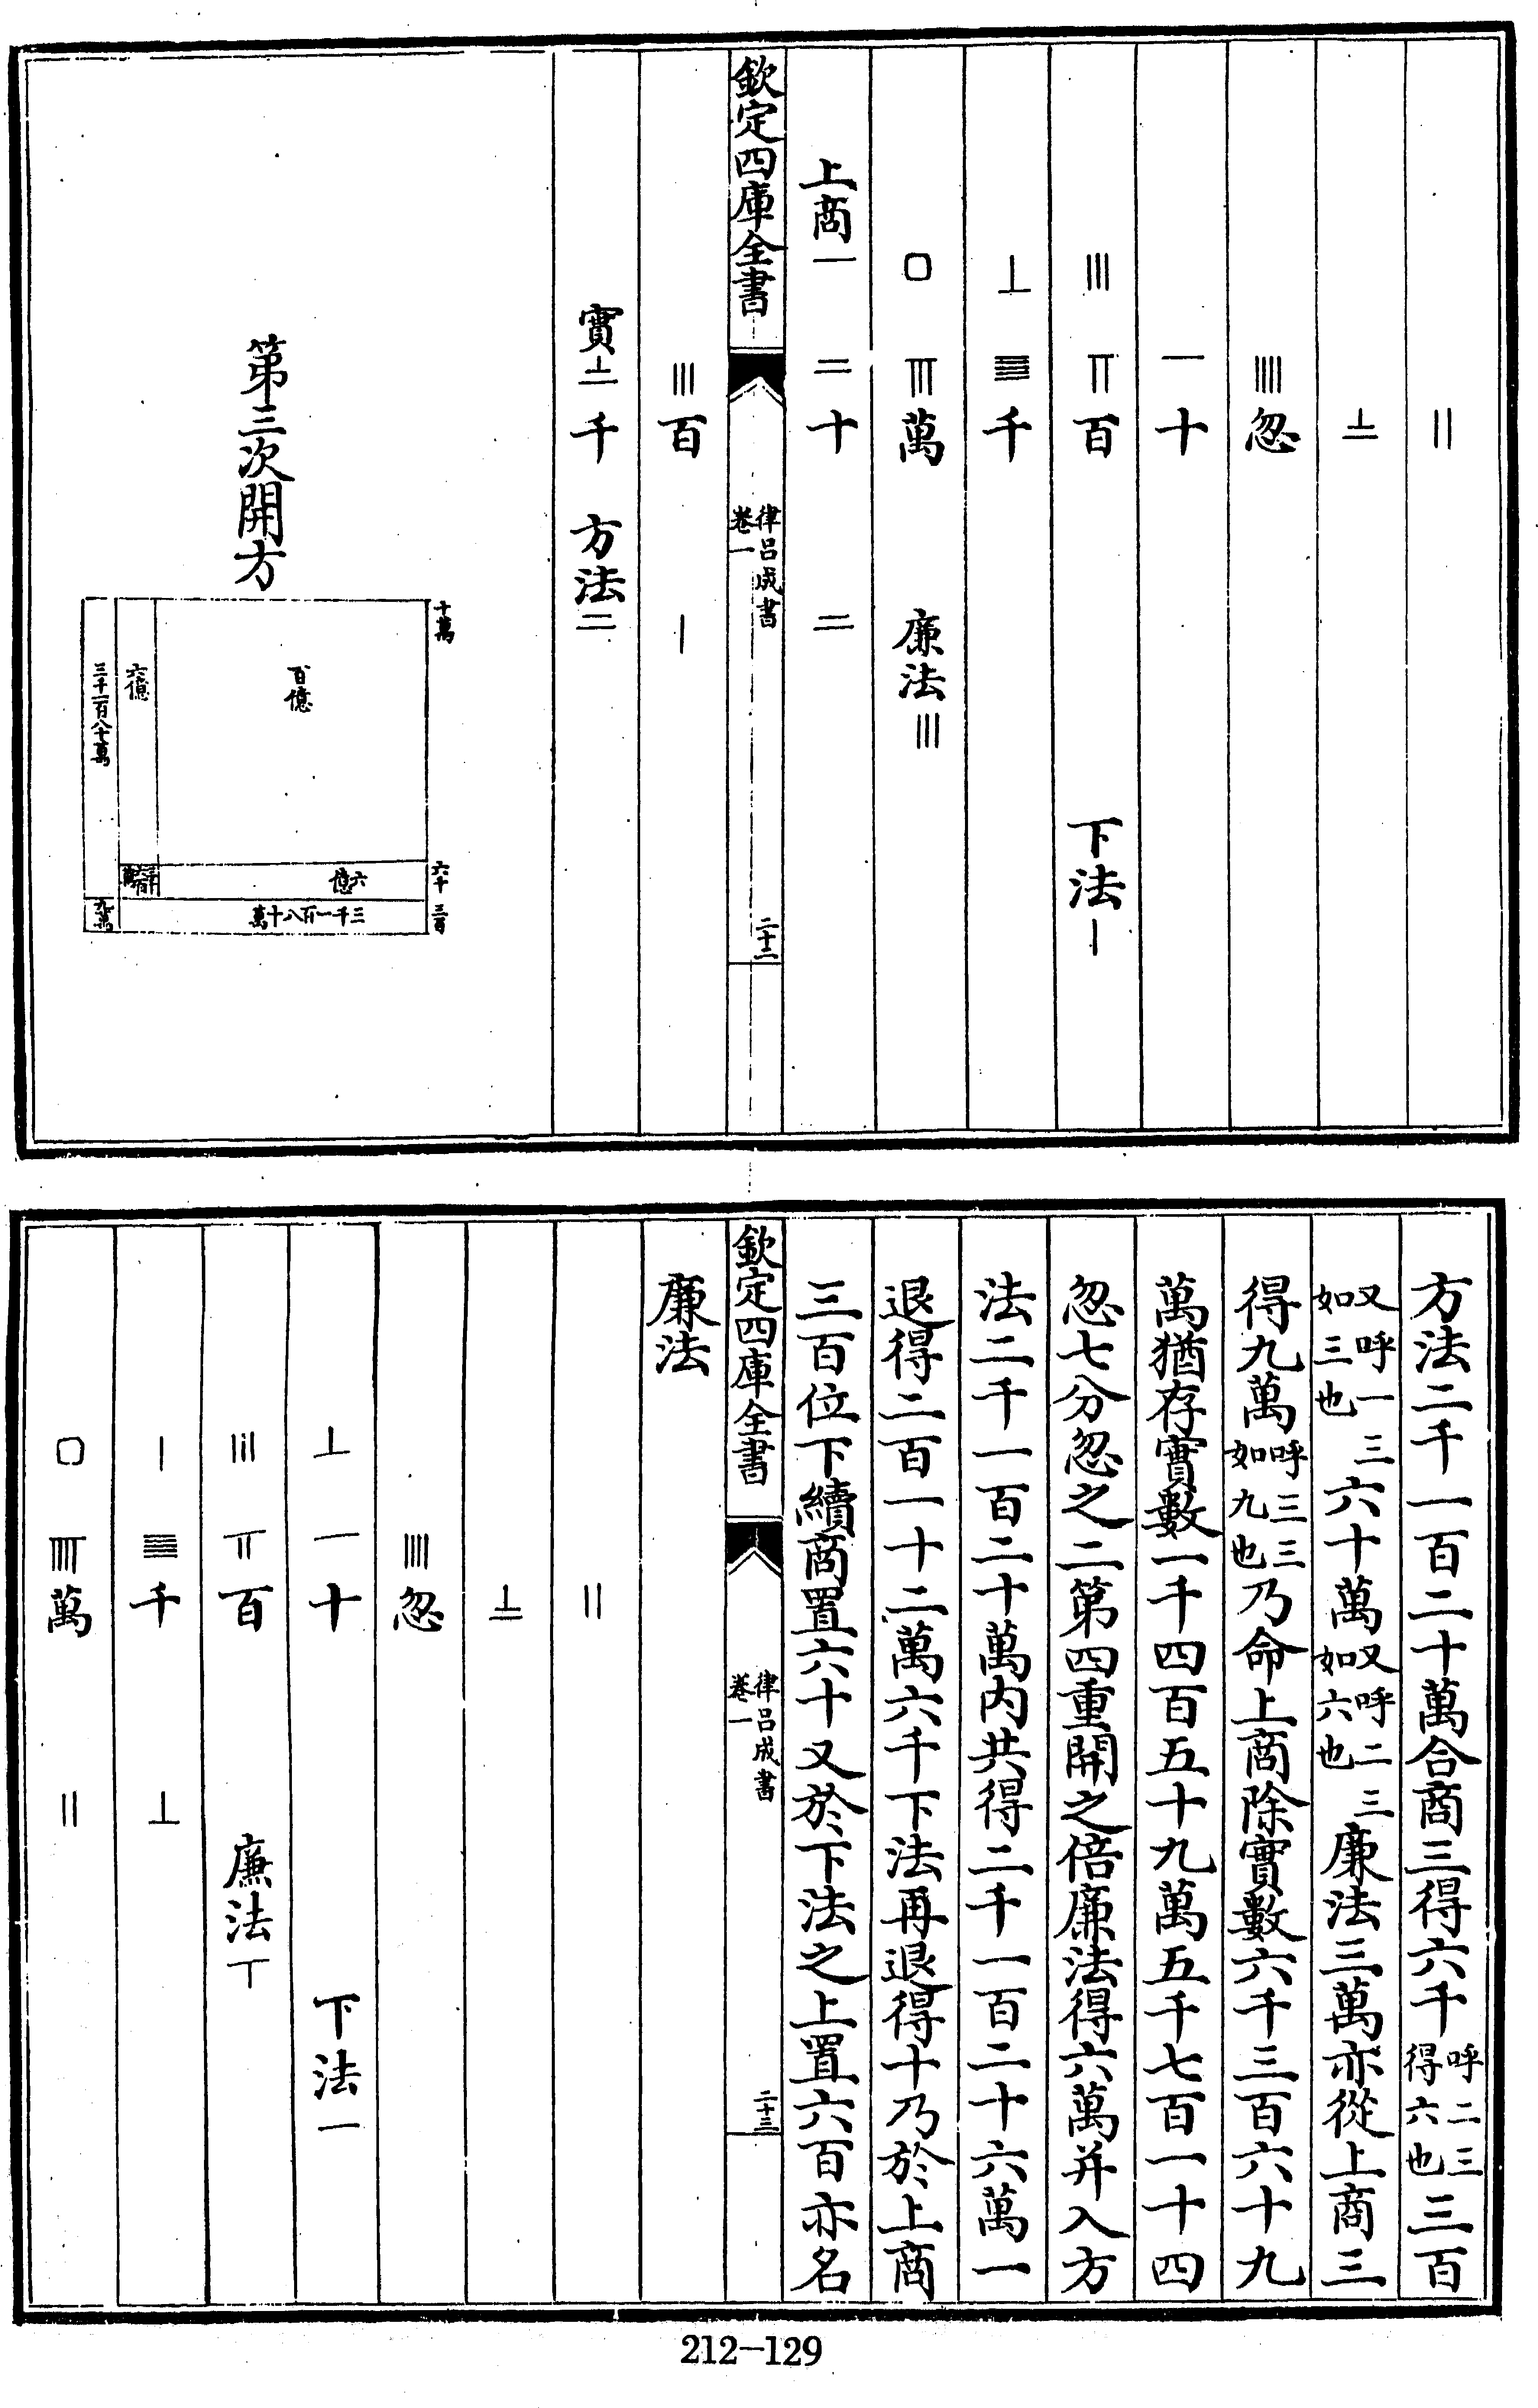 𝍡
𝍯
𝍣忽
𝍩十
𝍢 𝍦百 下法𝍠
𝍮 𝍭千
口 𝍨萬 廉法𝍢
上商一 二十 二
欽定四庫全書
律吕成書
卷一
二十二
𝍢百 𝍠
實𝍯千 方法二
第三次開方
十萬
六千
三百
百億
六億
三千一百八十萬
六億
三千六百萬
三千一百八十萬
九萬
方法二千一百二十萬合商三得六千呼二三得六也三百
又呼一三如三也六十萬又呼二三如六也廉法三萬亦從上商三
得九萬呼三三如九也乃命上商除實數六千三百六十九
萬猶存實數一千四百五十九萬五千七百一十四
忽七分忽之二第四重開之倍廉法得六萬并入方
法二千一百二十萬内共得二千一百二十六萬一
退得二百一十二萬六千下法再退得十乃於上商
三百位下續商置六十又於下法之上置六百亦名
欽定四庫全書
律吕成書
卷一
二十三
廉法
𝍡
𝍯
𝍣忽
𝍮 𝍩十 下法一
𝍢 𝍦百 廉法丅
𝍠 𝍭千 𝍮
口 𝍨萬 𝍡
212-129